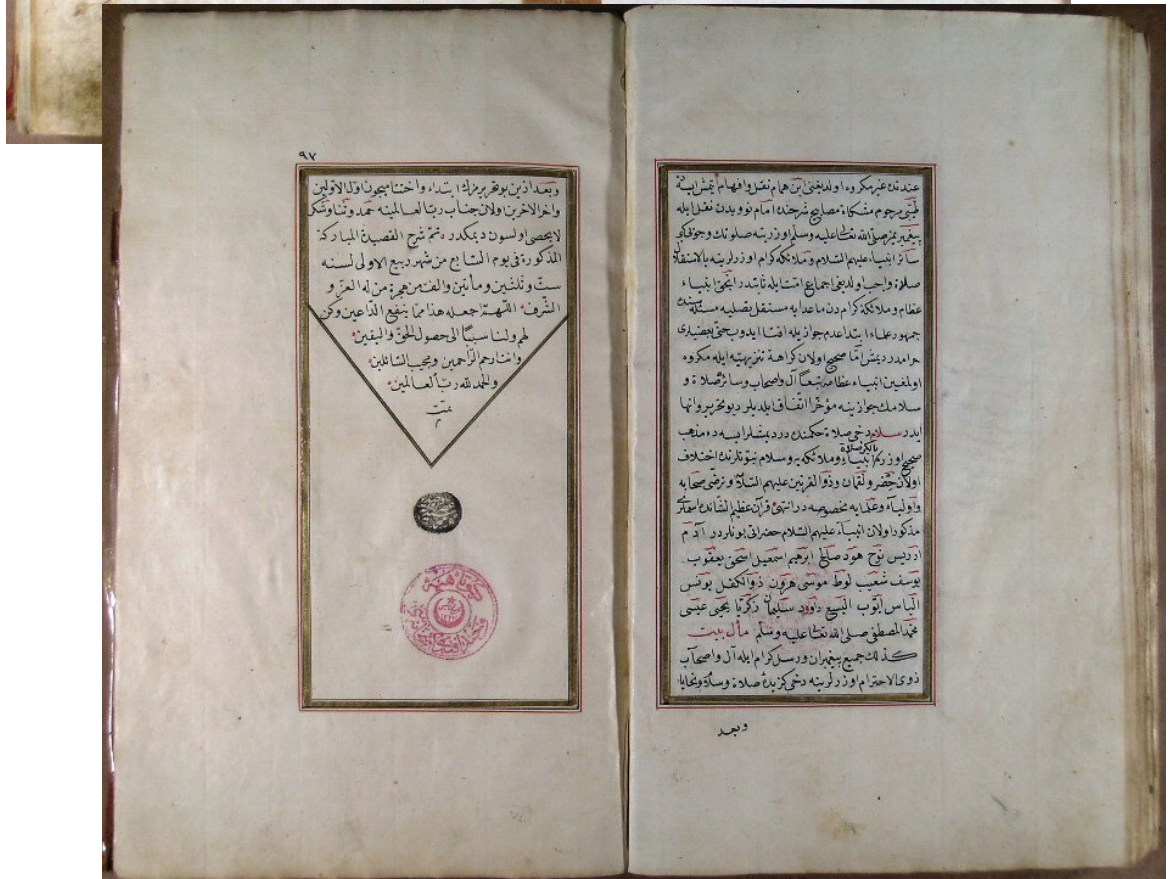 عندنده غیر مکروه اولدیغنی ابن همام نقل و افهام ایتمش ایسه
طیبی مرحوم مشکاة مصابیح شرحنده امام نوویدن نقل ایله
پیغمبریمز صلی الله تعالی علیه وسلم اوزرینه صلوتك وجوبی کبی
سائر انبیاء علیهم السلام و ملائکه کرام اوزرلرینه بالاستقلال
صلاة واجب اولدیغی اجماع امت ایله ثابتدر انجق انبیاء
عظام و ملائکه کرامدن ماعدایه مستقل تصلیه مسئله سنده
جمهور علماء ابتدا عدم جواز ایله افتا ایدوب حتی بعضیلری
حرامدر دیمش اما صحیح اولان کراهة تنزیهیه ایله مکروه
اولمغین انبیاء عظامه تبعاً آل واصحاب وسائره صلاة و
سلامك جوازینه مؤخرا اتفاق ایلدیلر دیو تحریر و انها
ایدر سلام دخی صلاة حکمنده در دیمشلر ایسه ده مذهب
صحیح اوزره انبیاء و ملائکه یه وسلام نبوتلرنده اختلاف
بالکز صلاة
اولان خضر و لقمان وذو القرنین علیهم السلام و ترضی صحابه
و اولیاء و علمایه مخصوصه در انتهی قرآن عظیم الشانده اسملری
مذکور اولان انبیاء علیهم السلام حضراتی بونلردر آدم
ادریس نوح هود صالح ابرهیم اسمعیل اسحق یعقوب
یوسف شعیب لوط موسی هرون ذو الکفل یونس
الیاس ایوب الیسع داوود سلیمان زکریا یحیی عیسی
محمد المصطفی صلی الله تعالی علیه وسلم مآل بیت
کذلك جمیع پیغمبران و رسل کرام ایله آل واصحاب
ذوی الاحترام اوزرلرینه دخی کزیده صلاة وسلام و تحایا
وبعد
٩٧
وبعد ازین بو تحریرمزك ابتداء و اختتامیچون اول الاولین
واخر الاخرین اولان جناب رب العالمینه حمد و ثنا و شکر
لا یحصی اولسون دیمکدر تم شرح القصیدة المبارکة
المذکورة فی یوم السابع من شهر ربیع الاولی لسنه
ست و ثلثین و مأتین والف من هجرة من له العز و
الشرف اللهم اجعله هذا مما ینفع الداعین وکن
لهم ولنا سبباً الی حصول الحق والیقین
وانت ارحم الراحمین ومجیب السائلین
والحمد لله رب العالمین
تمت
م